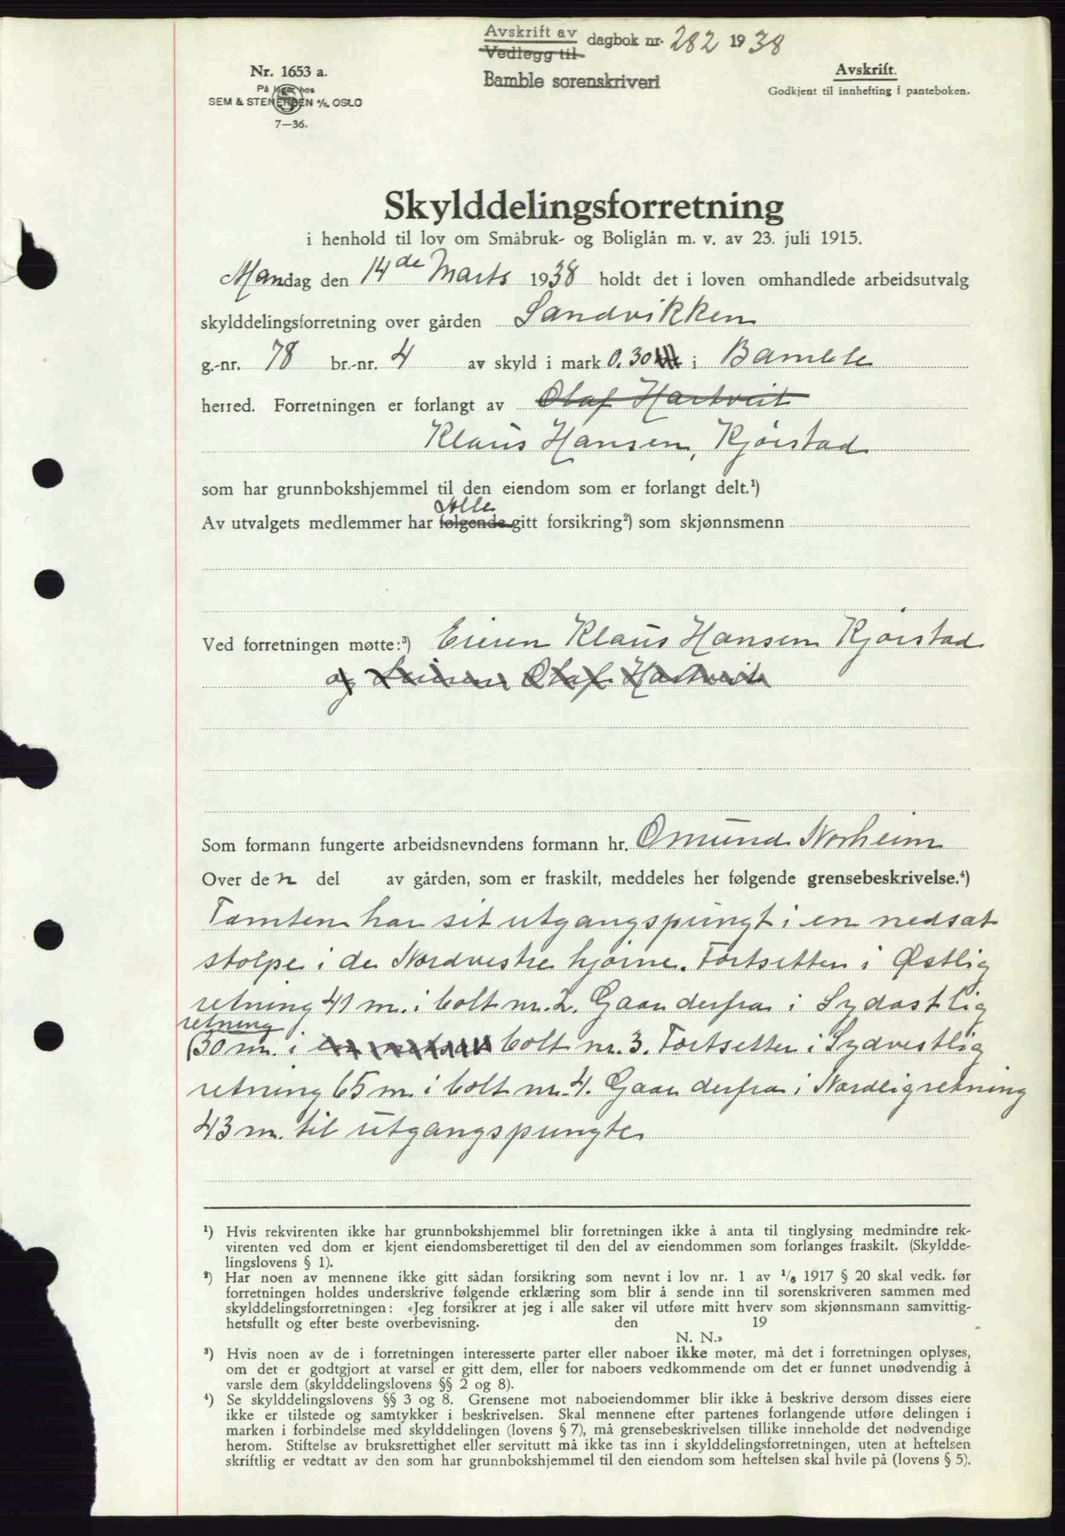 Avskrift av
Vedlegg til dagbok nr. 282 1938
Bamble sorenskriveri
Nr. 1653 a.
På lager hos
SEM & STENERSEN A/S, OSLO
7—36.
Avskrift.
Godkjent til innhefting i panteboken.
Skylddelingsforretning
i henhold til lov om Småbruk- og Boliglån m. v. av 23. juli 1915.
Mandag den 14de Marts 1938 holdt det i loven omhandlede arbeidsutvalg
skylddelingsforretning over gården Sandvikken
g.-nr. 78 br.-nr. 4 av skyld i mark 0.30 i Bamble
herred. Forretningen er forlangt av Olaf Hartveit
Klaus Hansen, Kjørstad
som har grunnbokshjemmel til den eiendom som er forlangt delt.¹)
Alle
Av utvalgets medlemmer har følgende gitt forsikring²) som skjønnsmenn
Ved forretningen møtte:³) Eieren Klaus Hansen Kjørstad
og Leieren Olaf Hartveit
Som formann fungerte arbeidsnevndens formann hr. Omund Norheim
Over den del av gården, som er fraskilt, meddeles her følgende grensebeskrivelse.⁴)
Tomten har sit utgangspungt i en nedsat
stolpe i de Nordvestre hjørne. Fortsetter i Østlig
retning 41 m. i bolt nr. 2. Gaar derfra i Sydøstlig
retning
30 m. i bolt nr. 3. Fortsetter i Sydvestlig
retning 65 m. i bolt nr. 4. Gaar derfra i Nordlig retning
43 m. til utgangspungte
¹) Hvis rekvirenten ikke har grunnbokshjemmel blir forretningen ikke å anta til tinglysing medmindre rek-
virenten ved dom er kjent eiendomsberettiget til den del av eiendommen som forlanges fraskilt. (Skyldde-
lingslovens § 1).
²) Har noen av mennene ikke gitt sådan forsikring som nevnt i lov nr. 1 av 1/6 1917 § 20 skal vedk. før
forretningen holdes underskrive følgende erklæring som blir å sende inn til sorenskriveren sammen med
skylddelingsforretningen: «Jeg forsikrer at jeg i alle saker vil utføre mitt hverv som skjønnsmann samvittig-
hetsfullt og efter beste overbevisning. den 19
N. N.»
³) Hvis noen av de i forretningen interesserte parter eller naboer ikke møter, må det i forretningen oplyses,
om det er godtgjort at varsel er gitt dem, eller for naboers vedkommende om det er funnet unødvendig å
varsle dem (skylddelingslovens §§ 2 og 8).
⁴) Se skylddelingslovens §§ 3 og 8. Grensene mot naboeiendommer blir ikke å beskrive dersom disses eiere
ikke er tilstede og samtykker i beskrivelsen. Skal mennene efter partenes forlangende utføre delingen i
marken i forbindelse med skylddelingen (lovens § 7), må grensebeskrivelsen tillike inneholde det nødvendige
herom. Stiftelse av bruksrettighet eller servitutt må ikke tas inn i skylddelingsforretningen, uten at heftelsen
skriftlig er vedtatt av den som har grunnbokshjemmel til den eiendom som heftelsen skal hvile på (lovens § 5).